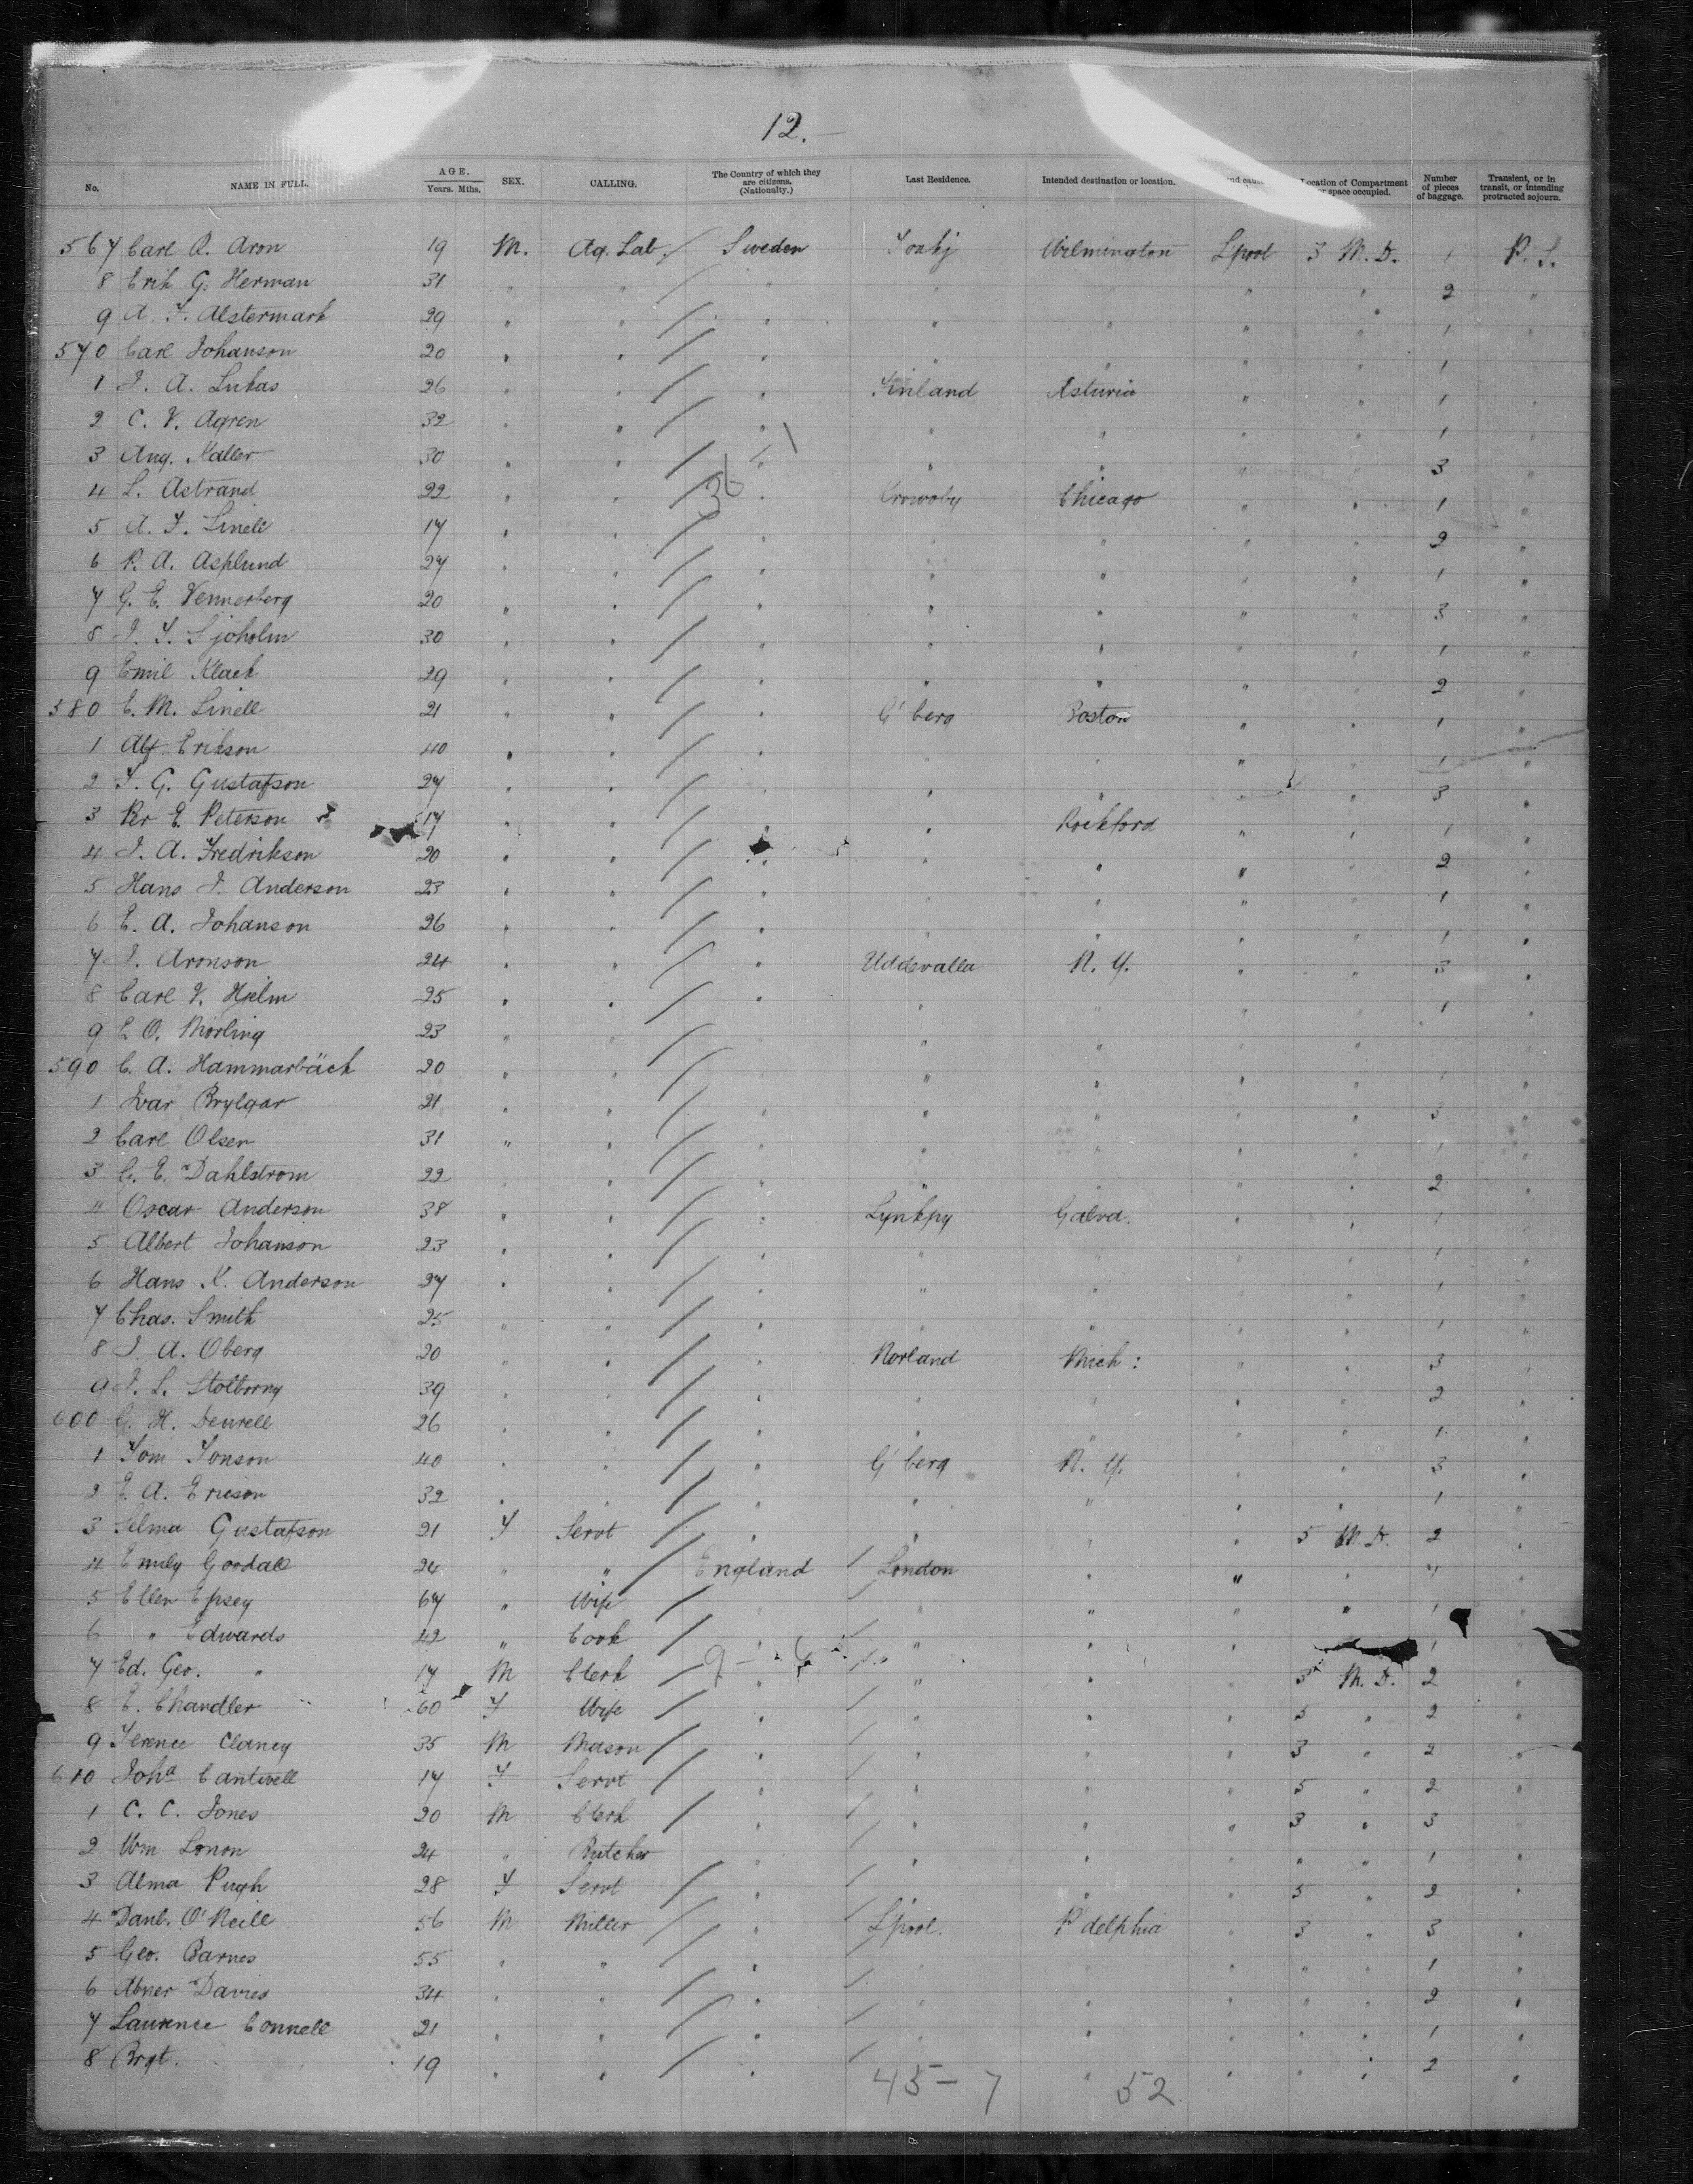 12.
No. NAME IN FULL. AGE. Years. Mths. SEX. CALLING. The Country of which they are citizens. (Nationality.) Last Residence. Intended destination or location. Location of Compartment or space occupied. Number of pieces of baggage. Transient, or in transit, or intending protracted sojourn.
567 Carl A. Aron 19 M. Ag. Lab. Sweden Wilmington L'pool 3 M.D. 1 P.S.
8 Erik G. Herman 31 " " " " " " " 2 "
9 A. F. Alstermark 29 " " " " " " " 1 "
570 Carl Johanson 20 " " " " " " " 1 "
1 J. A. Lukas 26 " " " Finland Asturia " " 1 "
2 C. V. Agren 32 " " " " " " " 1 "
3 Aug. Kaller 30 " " " " " " " 3 "
4 L. Astrand 22 " " " Chicago " " 1 "
5 A. F. Linell 17 " " " " " " " 2 "
6 P. A. Asplund 27 " " " " " " " 1 "
7 G. E. Vennerberg 20 " " " " " " " 3 "
8 J. F. Sjoholm 30 " " " " " " " 1 "
9 Emil Klack 29 " " " " " " " 2 "
580 E. M. Linell 21 " " " G'berg Boston " " 1 "
1 Alf. Erikson 40 " " " " " " " 1 "
2 F. G. Gustafson 27 " " " " " " " 3 "
3 Per E. Peterson 17 " " " " Rockford " " 1 "
4 J. A. Fredrikson 20 " " " " " " " 2 "
5 Hans J. Anderson 23 " " " " " " " 1 "
6 E. A. Johanson 26 " " " " " " " 1 "
7 J. Aronson 24 " " " Uddevalla N.Y. " " 3 "
8 Carl V. Hjelm 25 " " " " " " " 1 "
9 E. O. Morling 23 " " " " " " " "
590 C. A. Hammarbäck 20 " " " " " " " 1 "
1 Ivar Brylgar 21 " " " " " " " 3 "
2 Carl Olsen 31 " " " " " " " 1 "
3 G. E. Dahlstrom 22 " " " " " " " 2 "
4 Oscar Anderson 38 " " " Lynkpy Galva. " " 1 "
5 Albert Johanson 23 " " " " " " " 1 "
6 Hans K. Anderson 27 " " " " " " " 1 "
7 Chas. Smith 25 " " " " " " " 1 "
8 J. A. Oberg 20 " " " Norland Mich: " " 3 "
9 J. L. 39 " " " " " " " 2 "
600 G. H. Deurell 26 " " " " " " " 1 "
1 Tom Tonson 40 " " " G'berg N.Y. " " 3 "
2 E. A. Ericson 32 " " " " " " " 1 "
3 Selma Gustafson 21 F Servt " " " " 5 M.D. 2 "
4 Emily Goodall 24 " " England London " " " "
5 Ellen Epsey 67 " Wife " " " " " 1 "
6 " Edwards 42 " Cook " " " " 1 "
7 Ed. Geo. " 17 M Clerk " " " " 3 M.D. 2 "
8 E. Chandler 60 F Wife " " " " 5 " 2 "
9 Terence Clancy 35 M Mason " " " " 3 " 2 "
610 Joh^a Cantwell 17 F Servt " " " " 5 " 2 "
1 C. C. Jones 20 M Clerk " " " " 3 " 3 "
2 Wm Lonon 24 " Butcher " " " " " " 1 "
3 Alma Pugh 28 F Servt " " " " 5 " 2 "
4 Danl. O'Neill 56 M Miller " L'pool. P'delphia " 3 " 3 "
5 Geo. Barnes 55 " " " " " " " " 1 "
6 Abner Davies 34 " " " " " " " " 2 "
7 Laurence Connell 21 " " " " " " " " 1 "
8 Brgt. 19 " " " " " " " " 2 "
45-7 52